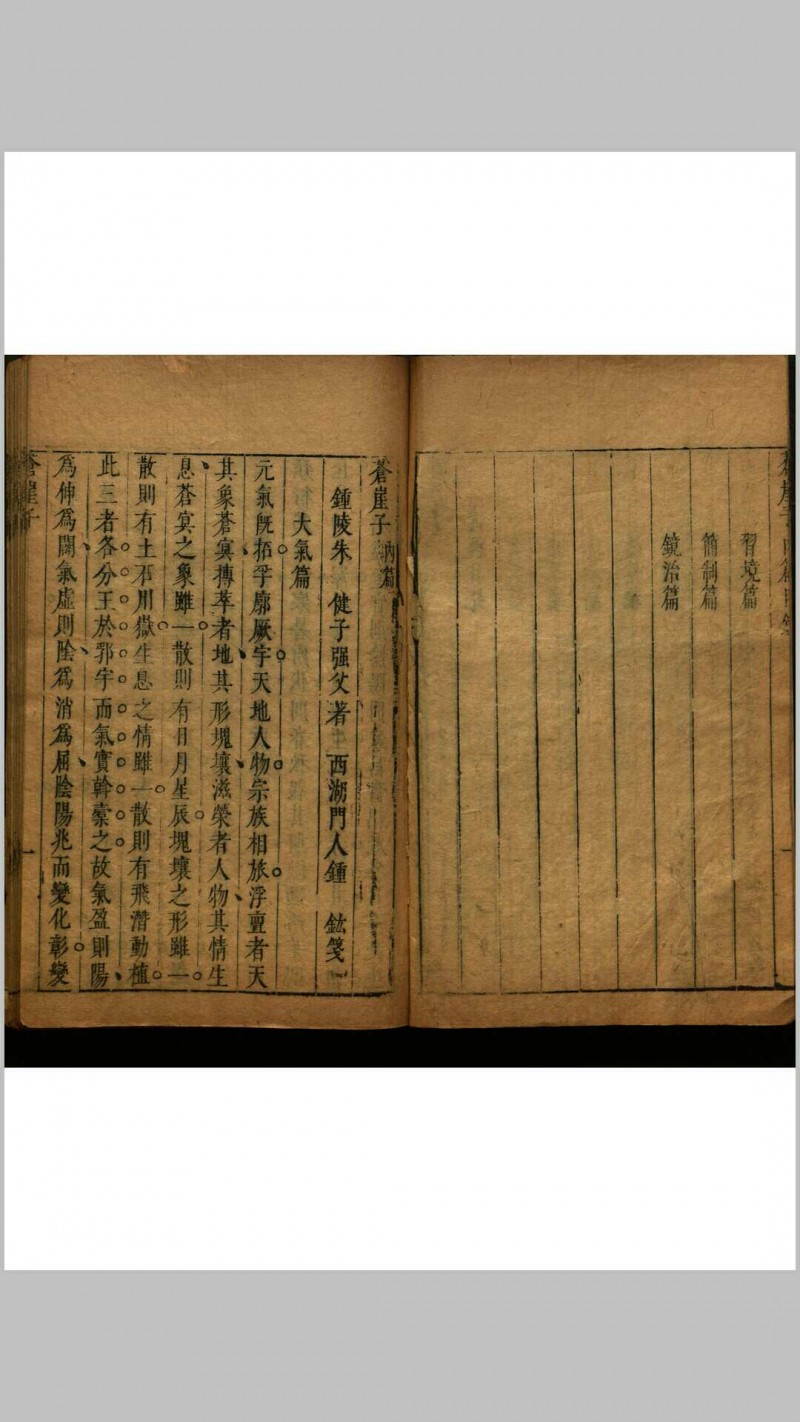 習境篇
簡制篇
鏡治篇
蒼崖子 內篇
鍾陵朱 健子強父著 西湖門人鍾 鉉箋
大氣篇
元氣旣拓。孚廓厥宇。天地人物。宗族相旅。浮亶者天
其象蒼寞、摶萃者地、其形塊壤、滋榮者人物、其情生
息、蒼寞之象雖一。散則有日月星辰。塊壤之形雖一。
散則有土石川嶽。生息之情雖一。散則有飛潛動植。
此三者各分王於郛宇而氣實幹橐之故氣盈則陽、
爲伸爲闢、氣虛則陰、爲消爲屈、陰陽兆而變化彰。變
蒼崖子
一